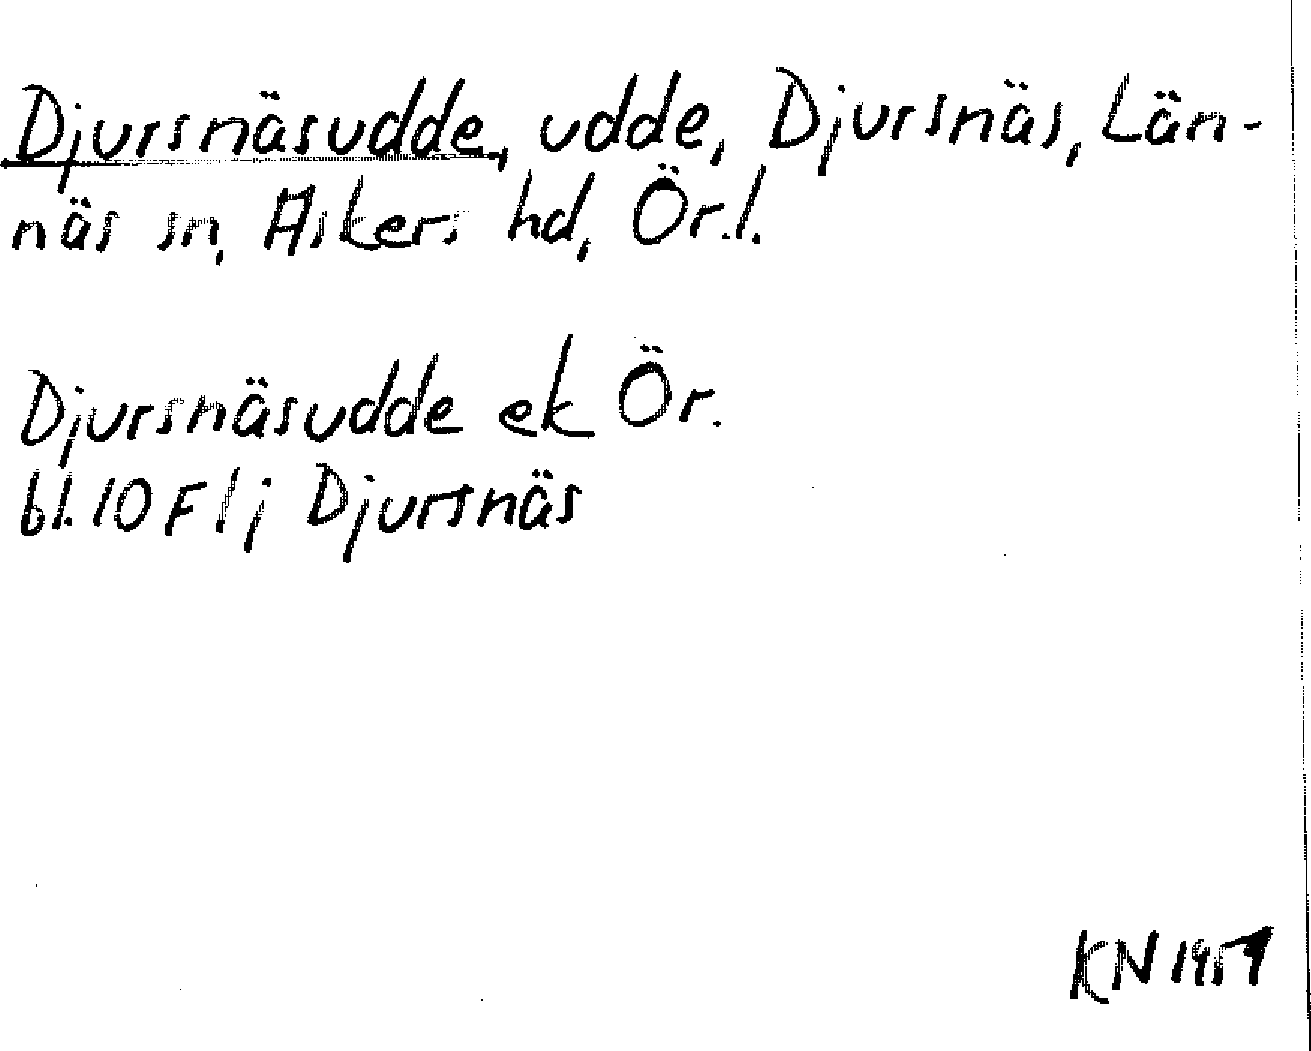 Djursnäsudde, udde, Djursnäs, Län-
näs sn, Askers hd, Ör.l.
Djursnäsudde ek Ör.
bl. 10 F 1 j Djursnäs
KN